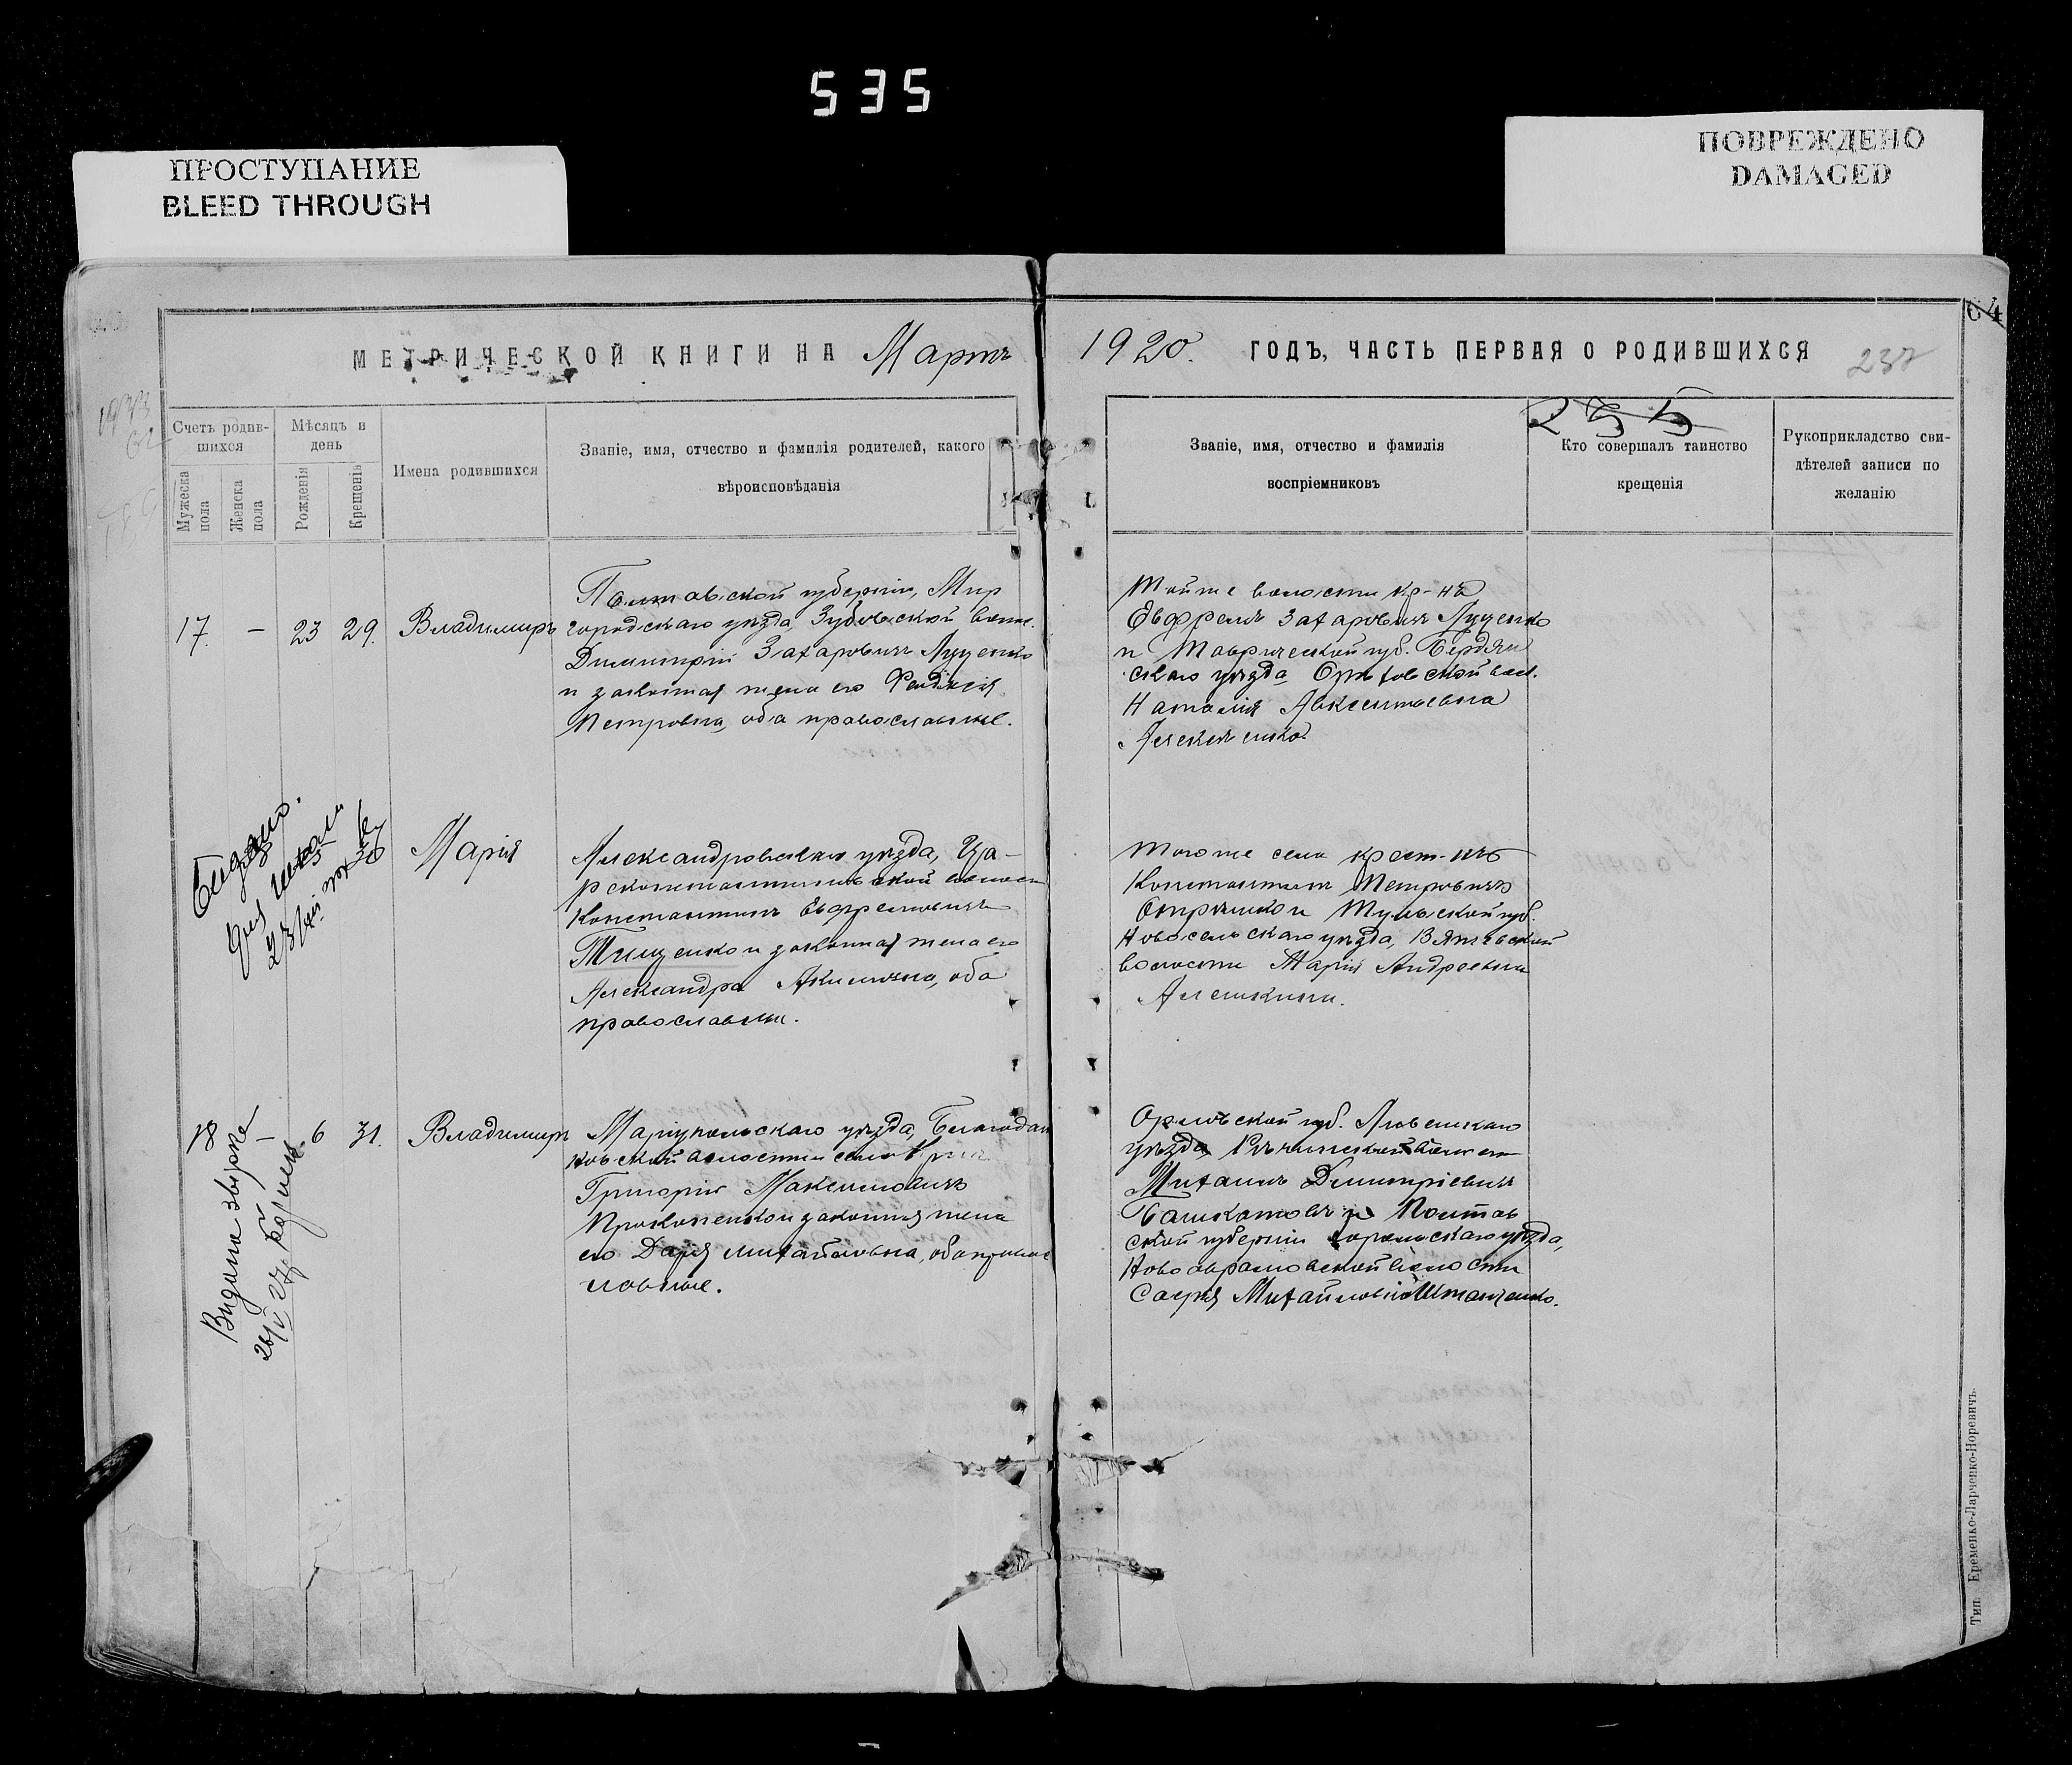 535
ПРОСТУПАНИЕ
BLEED THROUGH
ПОВРЕЖДЕНО
DAMAGED
МЕТРИЧЕСКОЙ КНИГИ НА Мартъ 1920. ГОДЪ, ЧАСТЬ ПЕРВАЯ О РОДИВШИХСЯ
237
235
Счетъ родив-
шихся
Мужеска
пола
Женска
пола
Мѣсяцъ и
день
Рожденія
Крещенія
Имена родившихся
Званіе, имя, отчество и фамилія родителей, какого
вѣроисповѣданія
Званіе, имя, отчество и фамилія
воспріемниковъ
Кто совершалъ таинство
крещенія
Рукоприкладство сви-
дѣтелей записи по
желанію
17. – 23 29. Владимиръ
Полтавской губерніи, Мир
городскаго уѣзда, Зубовской волос.
Димитрій Захаровичъ Луценко
и законная жена его
Петровна, оба православные.
Той же волости кр-нъ
Евфремъ Захаровичъ Луценко
и Таврической губ. Бердян
скаго уѣзда Орѣховской вол.
Наталія Авксентьевна
Марія
Александровскаго уѣзда, Ца-
реконстантиновской волост
Константинъ Евфремовичъ
Тищенко и законная жена его
Александра Акимовна, оба
православны.
Того же села крест-нъ
Константинъ Петровичъ
и Тульской губ.
Новосельскаго уѣзда,
волости Марія Андреевна
Алешкина.
18 – 6 31. Владимиръ
Маріупольскаго уѣзда, Благодат
новской волости села
Григорій Максимовичъ
Прокопенко и законная жена
его Дарія Михайловна, оба правос
лавные.
Орловской губ. Ливенскаго
уѣзда, волости
Михаилъ Димитріевичъ
Башкатовъ и Полтав
ской губерніи Хорольскаго уѣзда,
Новоаврамовской волости
Михайловна
Тип. Еременко-Ларченко-Норевичъ.